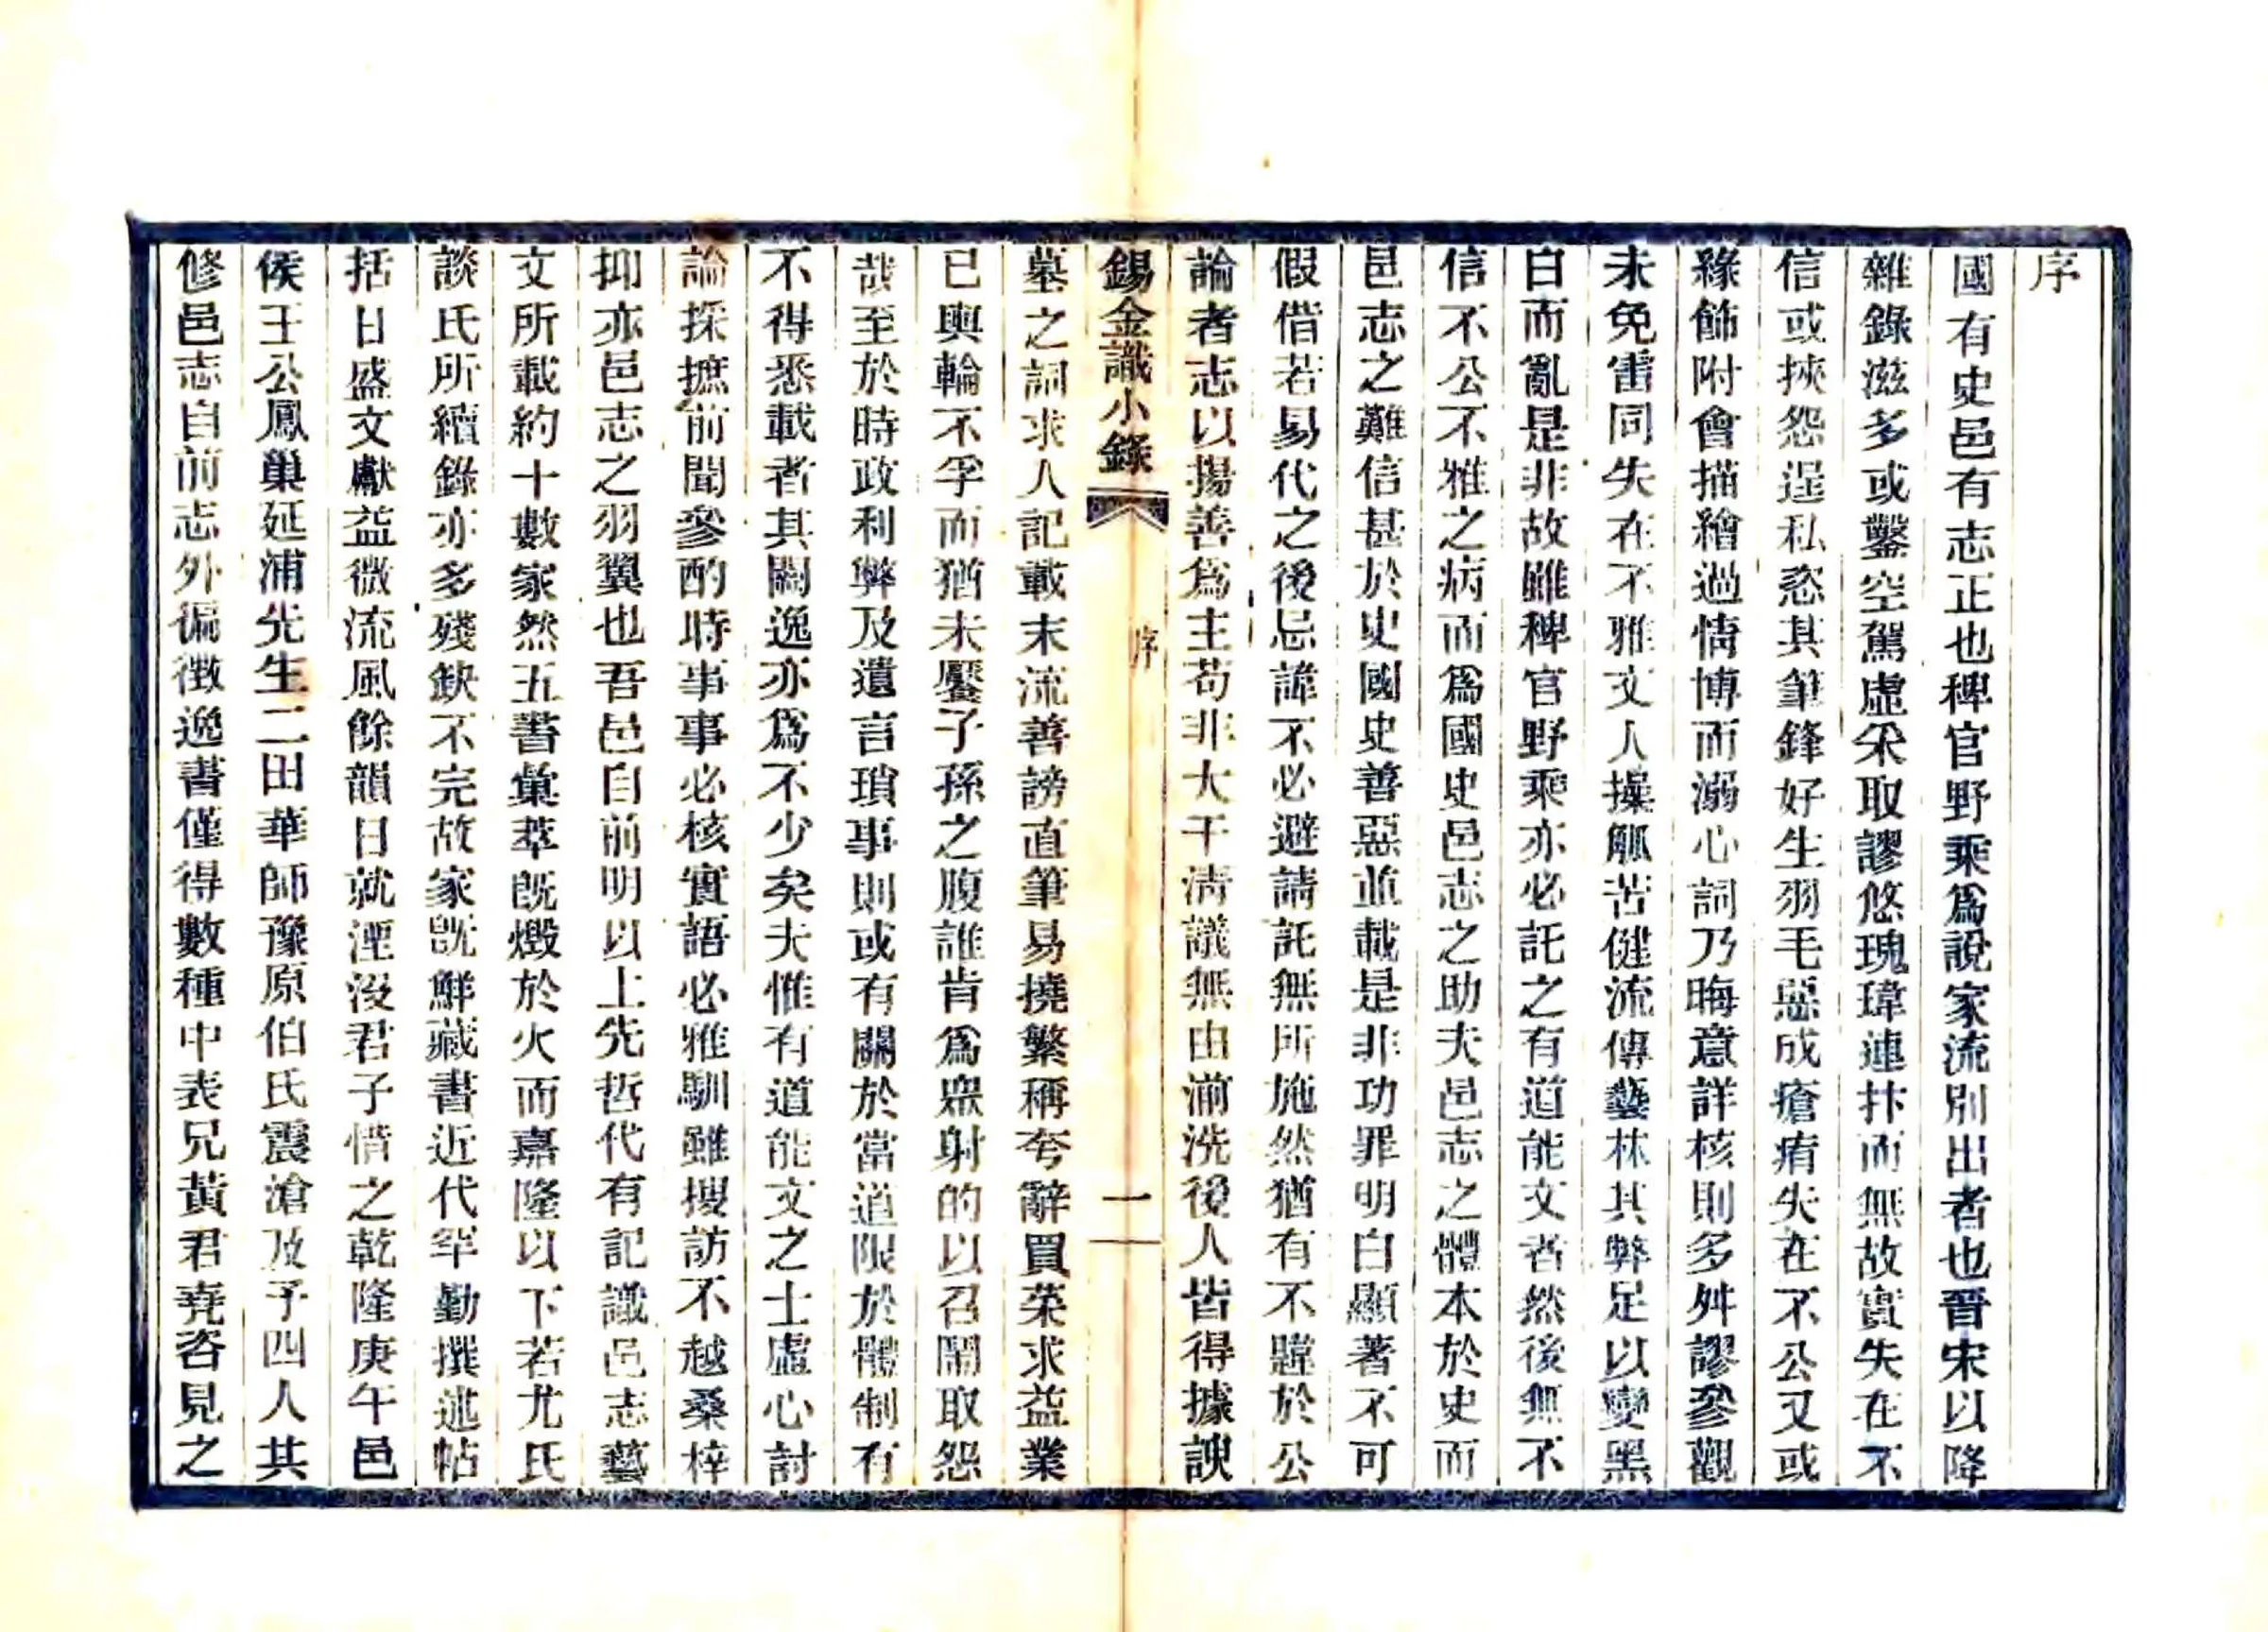 序
國有史邑有志正也稗官野乘爲說家流別出者也晉宋以降
雜錄滋多或鑿空駕虛采取謬悠瑰瑋連抃而無故實失在不
信或挾怨逞私恣其筆鋒好生羽毛惡成瘡痏失在不公又或
緣飾附會描繪過情博而溺心詞乃晦意詳核則多舛謬參觀
未免雷同失在不雅文人操觚苦健流傳藝林其弊足以變黑
白而亂是非故雖稗官野乘亦必託之有道能文者然後無不
信不公不雅之病而爲國史邑志之助夫邑志之體本於史而
邑志之難信甚於史國史善惡並載是非功罪明白顯著不可
假借若易代之後忌諱不必避請託無所施然猶有不韙於公
論者志以揚善爲主苟非大干清議無由湔洗後人皆得據諛
錫金識小錄 序 一
墓之詞求人記載末流善謗直筆易撓繁稱夸辭買菜求益業
已輿輪不孚而猶未饜子孫之腹誰肯爲眾射的以召鬧取怨
哉至於時政利弊及遺言瑣事則或有關於當道限於體制有
不得悉載者其闕逸亦爲不少矣夫惟有道能文之士虛心討
論採摭前聞參酌時事事必核實語必雅馴雖搜訪不越桑梓
抑亦邑志之羽翼也吾邑自前明以上先哲代有記識邑志藝
文所載約十數家然五書彙萃既燬於火而嘉隆以下若尤氏
談氏所續錄亦多殘缺不完故家既鮮藏書近代罕勤撰述帖
括日盛文獻益微流風餘韻日就湮沒君子惜之乾隆庚午邑
侯王公鳳巢延浦先生二田華師豫原伯氏震滄及予四人共
修邑志自前志外徧徵逸書僅得數種中表兄黃君堯咨見之